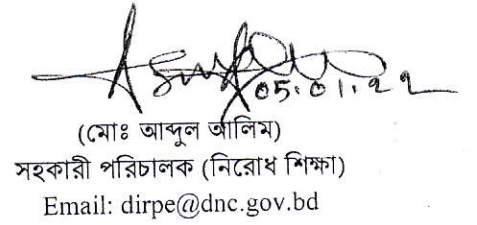 05.01.22
(মোঃ আব্দুল আলিম)
সহকারী পরিচালক (নিরোধ শিক্ষা)
Email: dirpe@dnc.gov.bd